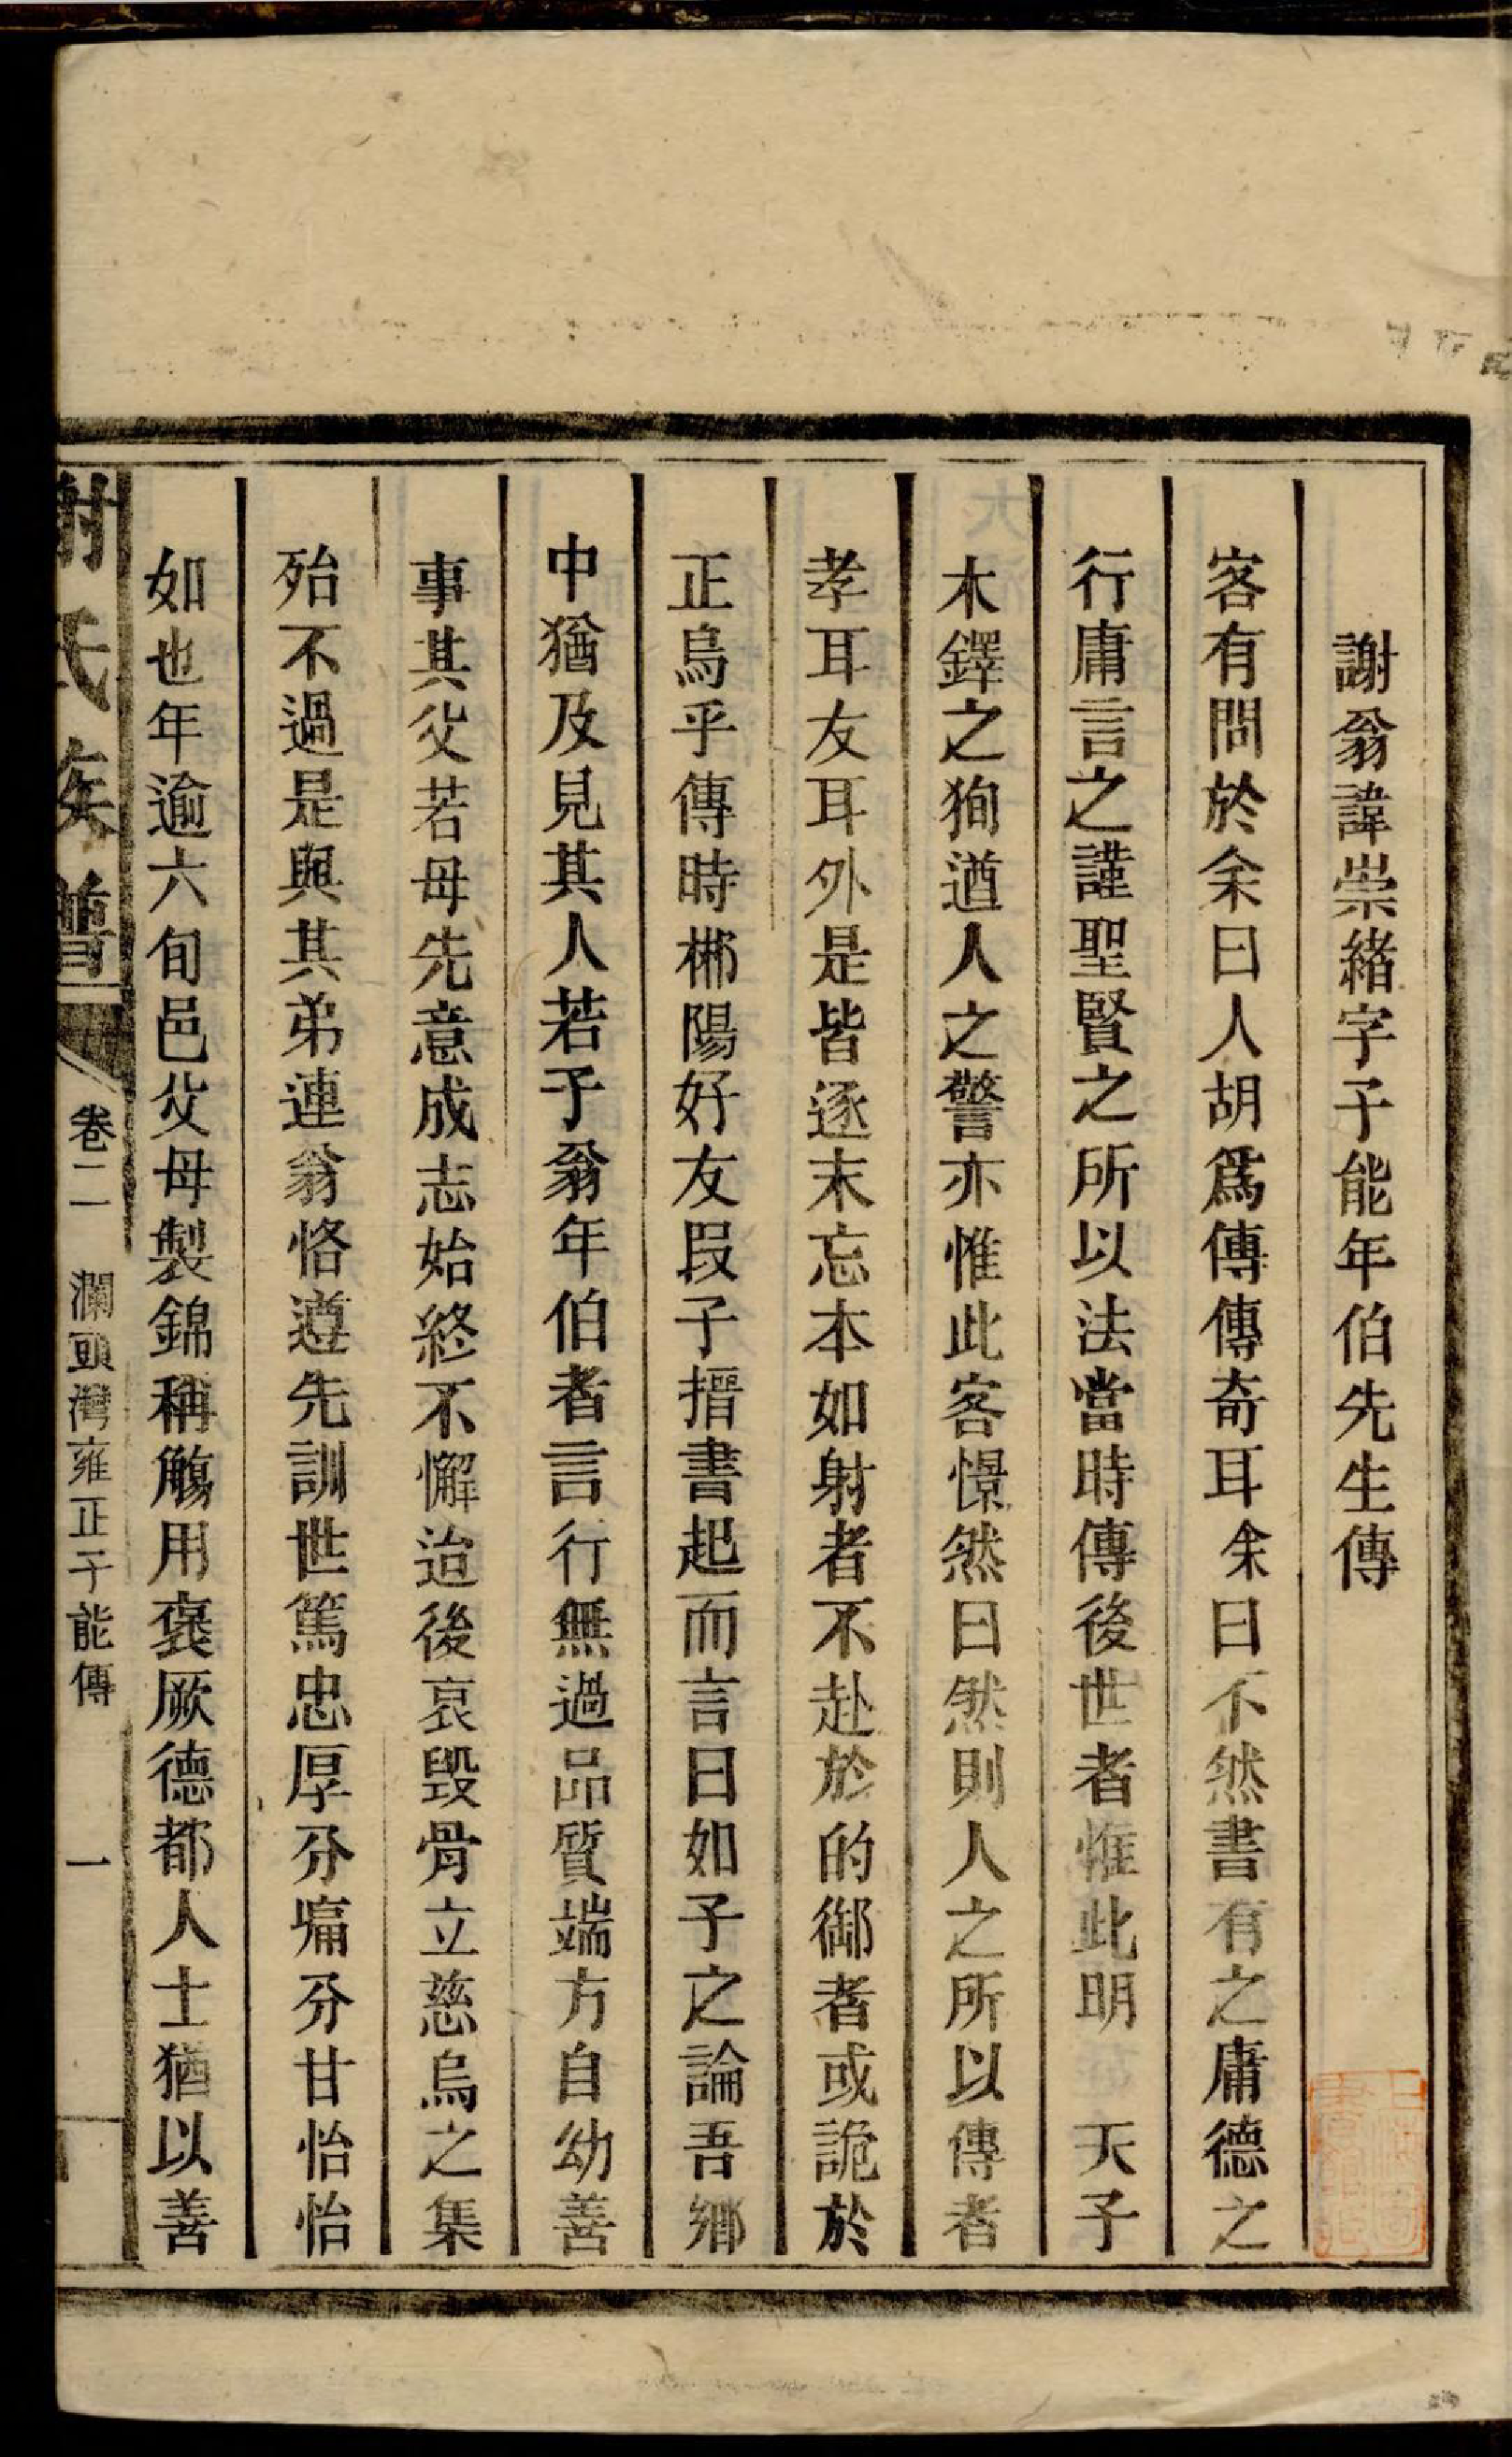 謝翁諱崇緒字子能年伯先生傳
客有問於余曰人胡爲傳傳奇耳余曰不然書有之庸德之
行庸言之謹聖賢之所以法當時傳後世者惟此明 天子
木鐸之狥遒人之警亦惟此客憬然曰然則人之所以傳者
孝耳友耳外是皆逐末忘本如射者不赴於的御者或詭於
正烏乎傳時郴陽好友段子搢書起而言曰如子之論吾鄉
中猶及見其人若于翁年伯者言行無過品質端方自幼善
事其父若母先意成志始終不懈迨後哀毀骨立慈烏之集
殆不過是與其弟連翁恪遵先訓世篤忠厚分痛分甘怡怡
如也年逾六旬邑父母製錦稱觴用褒厥德都人士猶以善
謝氏族譜 卷二 瀾頭灣雍正子能傳 一